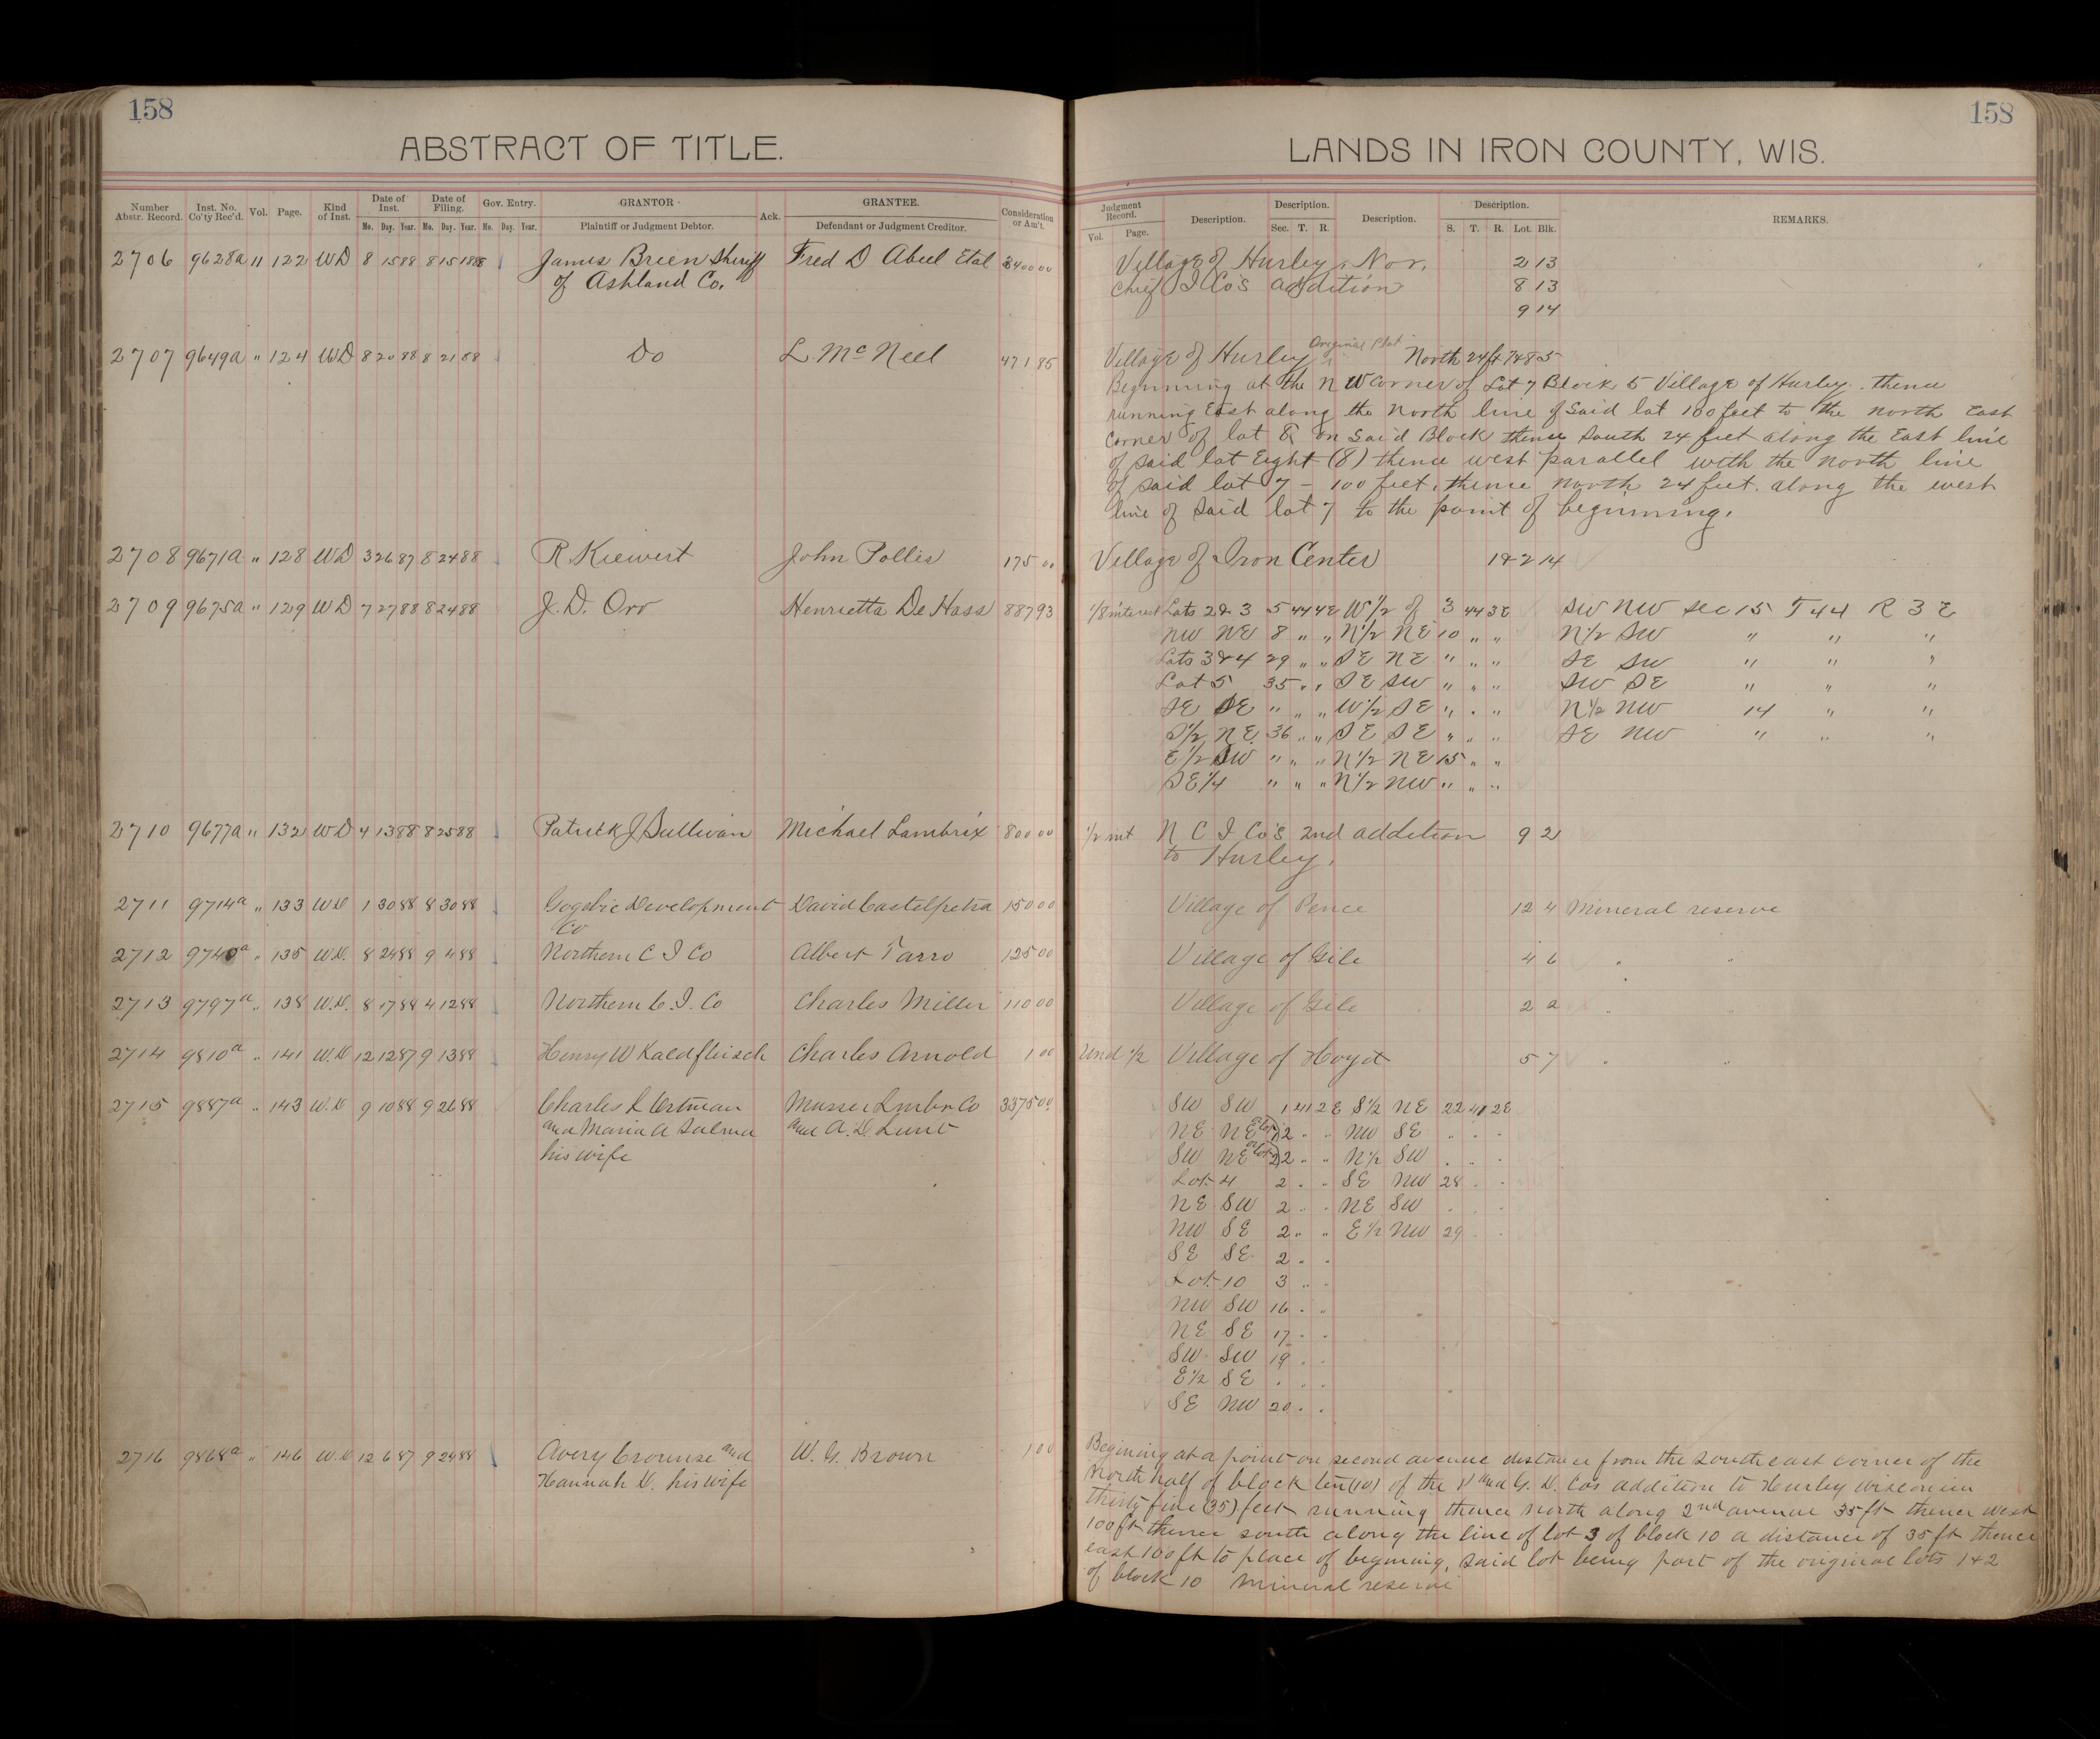 158
ABSTRACT OF TITLE.
Number Abstr. Record. Inst. No. Co'ty Rec'd. Vol. Page. Kind of Inst. Date of Inst. Date of Filing. Gov. Entry. GRANTOR Ack. GRANTEE. Consideration or Am't.
Mo. Day. Year. Mo. Day. Year. Mo. Day. Year. Plaintiff or Judgment Debtor. Defendant or Judgment Creditor.
2706 9628a " 122 WD 8 15 88 8 15 1888 James Breen Sheriff Fred D Abeel Etal 3400 00
of Ashland Co.
2707 9649a " 124 WD 8 20 88 8 21 88 Do L. McNeel 471 85
2708 9671a " 128 WD 3 26 87 8 24 88 R Kiewert John Pollis 175 00
2709 9675a " 129 WD 7 27 88 8 24 88 J. D. Orr Henrietta De Hass 887 93
2710 9677a " 132 WD 4 13 88 8 25 88 Patrick J Sullivan Michael Lambrix 800 00
2711 9714a " 133 WD 1 30 88 8 30 88 Gogebic Development David Castelpetra 150 00
Co
2712 9740a " 135 W.D. 8 24 88 9 4 88 Northern C I Co Albert Tarro 125 00
2713 9797a " 138 W.D. 8 17 88 4 12 88 Northern C. I. Co Charles Miller 110 00
2714 9810a " 141 W.D 12 12 87 9 13 88 Henry W Kaldfleisch Charles Arnold 1 00
2715 9887a " 143 W.D 9 10 88 9 26 88 Charles L Ortman Musser Lmbr Co 3375 00
and Maria A Salma and A. D. Lunt
his wife
2716 9868a " 146 W.D 12 6 87 9 24 88 Avery Crounse and W. G. Brown 1 00
Hannah D. his wife
158
LANDS IN IRON COUNTY, WIS.
Judgment Record. Description. Description. Description. Description. REMARKS.
Vol. Page. Sec. T. R. S. T. R. Lot. Blk.
Village of Hurley, Nor. 2 13
Chief I Co's addition 8 13
9 14
Village of Hurley Original Plat North 24 ft 7&8 5
Beginning at the NW corner of Lot 7 Block 5 Village of Hurley. thence
running East along the North line of said lat 100 feet to the north East
corner of lat 8 on said Block thence south 24 feet along the East line
of said lat Eight (8) thence west parallel with the north line
of said lat 7 - 100 feet, thence north 24 feet. along the west
line of said lat 7 to the point of beginning.
Village of Iron Center 1&2 14
1/8 interest Lats 2&3 5 44 4E W 1/2 of 3 44 3E SW NW Sec 15 T 44 R 3 E
NW NE 8 " " N 1/2 NE 10 " " N 1/2 SW " " "
Lats 3&4 29 " " SE NE " " " SE SW " " "
Lat 5 35 " " SE SW " " " SW SE " " "
SE SE " " " W 1/2 SE " " " N 1/2 NW 14 " "
S 1/2 NE 36 " " SE SE " " " SE NW " " "
E 1/2 SW " " " N 1/2 NE 15 " "
SE 1/4 " " " N 1/2 NW " " "
1/2 int N C I Co's 2nd addition 9 2
to Hurley.
Village of Pence 12 4 Mineral reserve
Village of Gile 4 6 " "
Village of Gile 2 2 " "
Und 1/2 Village of Hoyt 5 7 " "
SW SW 1 41 2E S 1/2 NE 22 41 2E
NE NE or Lot 1 2 " " NW SE " " "
SW NE or Lot 2 2 " " N 1/2 SW " " "
Lot 4 2 " " SE NW 28 " "
NE SW 2 " " NE SW " " "
NW SE 2 " " E 1/2 NW 29 " "
SE SE 2 " "
Lot 10 3 " "
NW SW 16 " "
NE SE 17 " "
SW SW 19 " "
E 1/2 SE " " "
SE NW 20 " "
Begining at a point on second avenue distance from the southeast corner of the
North half of block ten (10) of the and G. D. Cos addition to Hurley wisconsin
thirty five (35) feet running thence north along 2nd avenue 35 ft thence west
100 ft thence south along the line of lot 3 of block 10 a distance of 35 ft thence
east 100 ft to place of begining, said lot being part of the original lots 1 & 2
of block 10 Mineral reserve